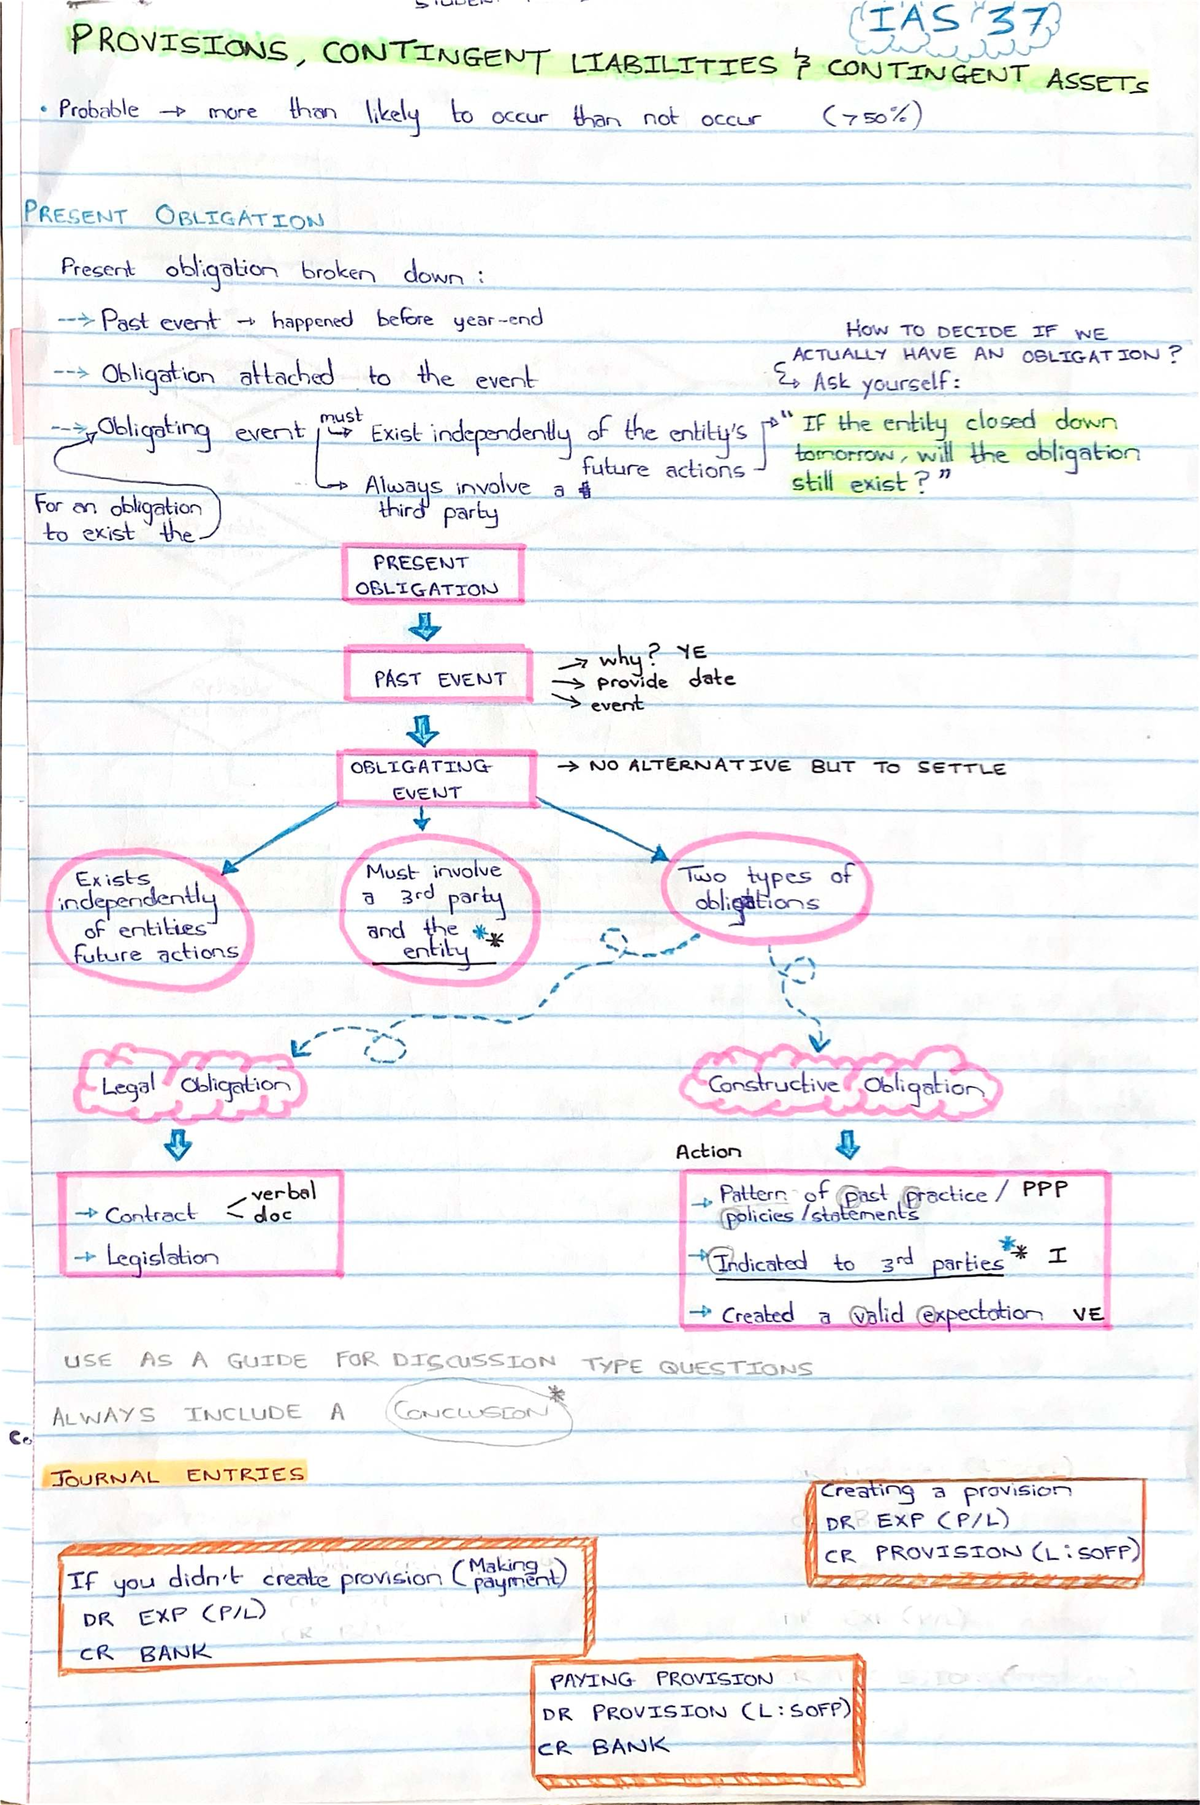 IAS 37
PROVISIONS, CONTINGENT LIABILITIES & CONTINGENT ASSETS
• Probable → more than likely to occur than not occur (>50%)
PRESENT OBLIGATION
Present obligation broken down:
--> Past event → happened before year-end
--> Obligation attached to the event
--> Obligating event must → Exist independently of the entity's
future actions
→ Always involve a
third party
For an obligation
to exist the
HOW TO DECIDE IF WE
ACTUALLY HAVE AN OBLIGATION?
→ Ask yourself:
" If the entity closed down
tomorrow, will the obligation
still exist?"
PRESENT
OBLIGATION
PAST EVENT
→ why? YE
→ provide date
→ event
OBLIGATING
EVENT
→ NO ALTERNATIVE BUT TO SETTLE
Exists
independently
of entities'
future actions
Must involve
a 3rd party
and the **
entity
Two types of
obligations
Legal Obligation
Constructive Obligation
→ Contract < verbal
doc
→ Legislation
Action
→ Pattern of past practice / PPP
policies/statements
→ Indicated to 3rd parties ** I
→ Created a valid expectation VE
USE AS A GUIDE FOR DISCUSSION TYPE QUESTIONS
ALWAYS INCLUDE A CONCLUSION *
Co
JOURNAL ENTRIES
Creating a provision
DR EXP (P/L)
CR PROVISION (L:SOFP)
If you didn't create provision (Making
payment)
DR EXP (P/L)
CR BANK
PAYING PROVISION
DR PROVISION (L:SOFP)
CR BANK